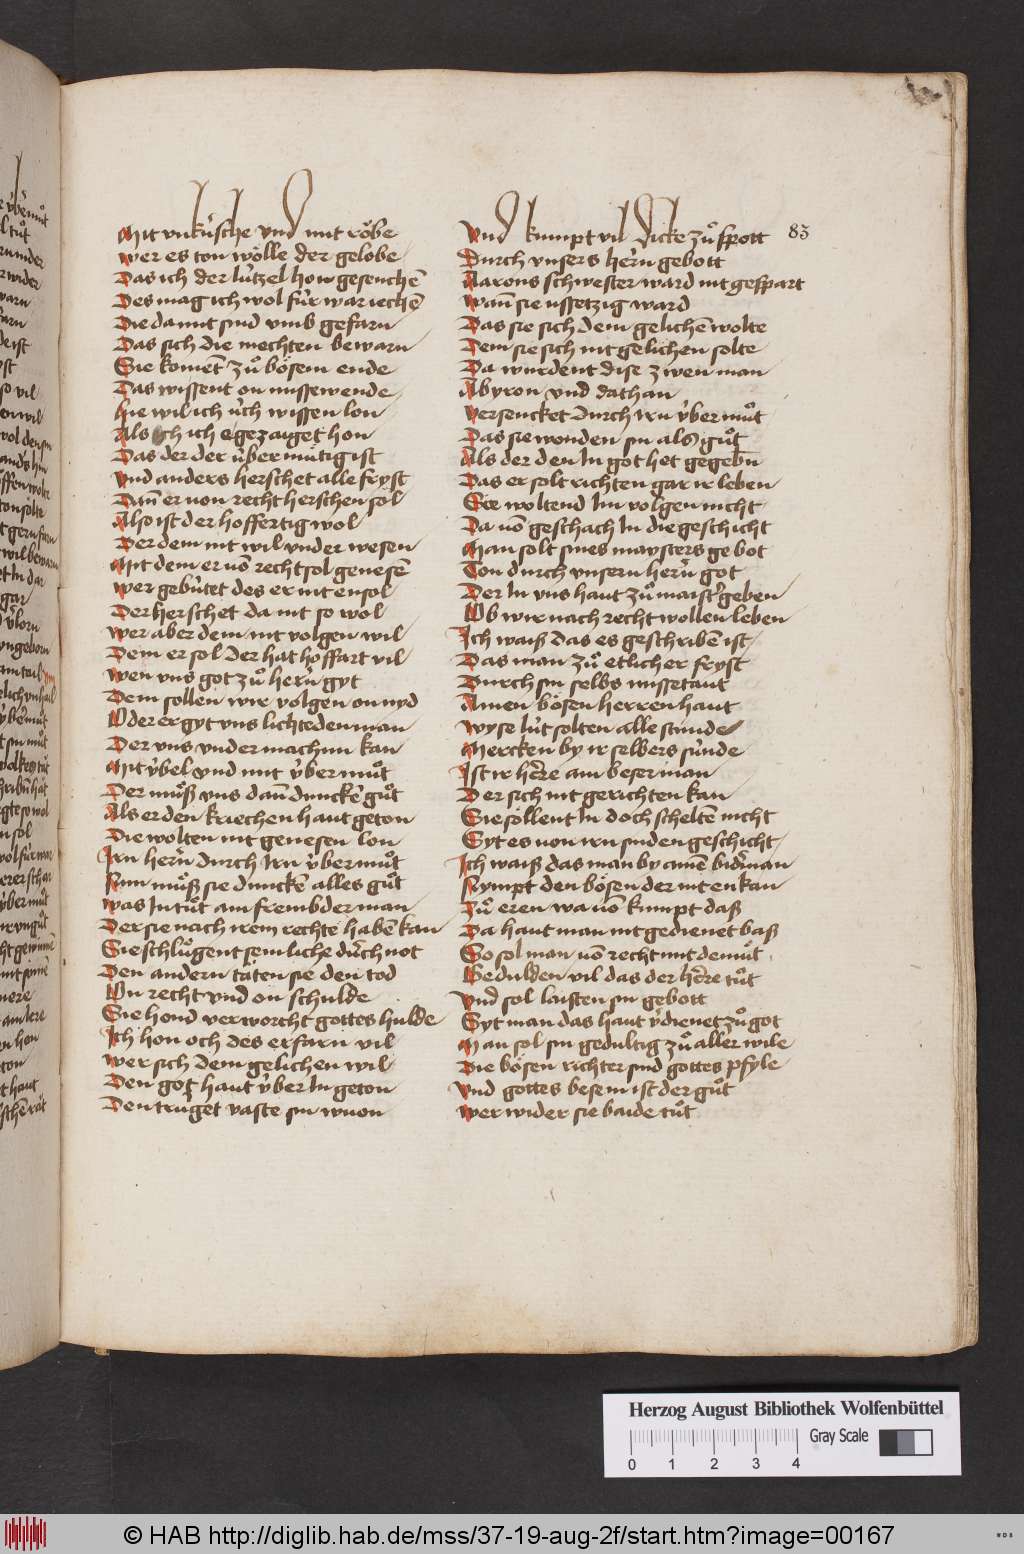 83
Mit vnkúsche vnd mit röbe
Wer es ton wölle der gelobe
Das ich der lútzel hon gesenchē
Des mag ich wol fúr war iechē
Die da mit sind vmb gefarn
Das sich die mechten bewarn
Sie komēt zuͦ bösem ende
Das wissent on missewende
Hie wil ich úch wissen lon
Als ich egezaiget hon
Das der der úbermútig ist
Vnd anders herschet alle fryst
Dañ er von recht herschen sol
Also ist der hoffertig wol
Der dem nit wil vnder wesen
Mit dem er võ recht sol genesē
Wer gebútet des er nit ensol
Der herschet da nit so wol
Wer aber dem nit volgen wil
Dem er sol der hat hoffart vil
Wen vns got zuͦ herñ gyt
Dem sollen wir volgen on nyd
Oder er gyt vns licht eden man
Der vns vnder machim kan
Mit úbel vnd mit úber muͦt
Der muͦß vns dañ duncken guͦt
Als er den kriechen haut geton
Die wolten nit genesen lon
Irn herñ durch Irn úber muͦt
Nun muͦß sie dunckē alles guͦt
Was In tuͦt ain frembder man
Der sie nach irem rechte habē kan
Sie schluͦgent semliche durch not
Den andern taten sie den tod
On recht vnd on schulde
Sie hond verworcht gottes hulde
Ich hon och des erfarn vil
Wer sich dem gelichen wil
Den got haut úber In geton
Den truget vaste sin wuon
Vnd kumpt vil dicke zuͦ spott
Durch vnsers herñ gebott
Aarons schwester ward nit gespart
Wañ sie vssetzig ward
Das sie sich dem gelichē wolte
Dem sie sich nit gelichen solte
Da wurdent dise zwen man
Abyron vnd dathan
Versencket durch irn úber muͦt
Das sie wonden sin als guͦt
Als der den In got het gegebn̄
Das er solt richten gar ir leben
Sie woltend Im volgen nicht
Da võ geschach In die geschicht
Man solt sines maysters gebot
Ton durch vnsern herñ got
Der In vns haut zuͦ maister geben
Ob wir nach recht wollen leben
Ich waiß das es geschribē ist
Das man zuͦ etlicher fryst
Durch sin selbs missetaut
Ainen bösen herren haut
Wyse lút solten alle stunde
Mercken by ir selbers súnde
Ist ir herre ain böser man
Der sich nit gerichten kan
Sie sollent In doch scheltē nicht
Syt es von irn sinden geschicht
Ich waiß das man by ainē bidrman
Nympt den bösen der nit enkan
Zuͦ eren wa võ kumpt daß
Da haut man nit gedienet baß
So sol man võ recht mit demuͦt
Gedulden vil das der herre tuͦt
Vnd sol laisten sin gebott
Syt man das haut v̄dienet zuͦ got
Man sol sin gedultig zuͦ aller wile
Die bösen richter sind gottes pfyle
Vnd gottes besem ist der guͦt
Wer wider sie baide tuͦt
Herzog August Bibliothek Wolfenbüttel
Gray Scale
0 1 2 3 4
© HAB http://diglib.hab.de/mss/37-19-aug-2f/start.htm?image=00167